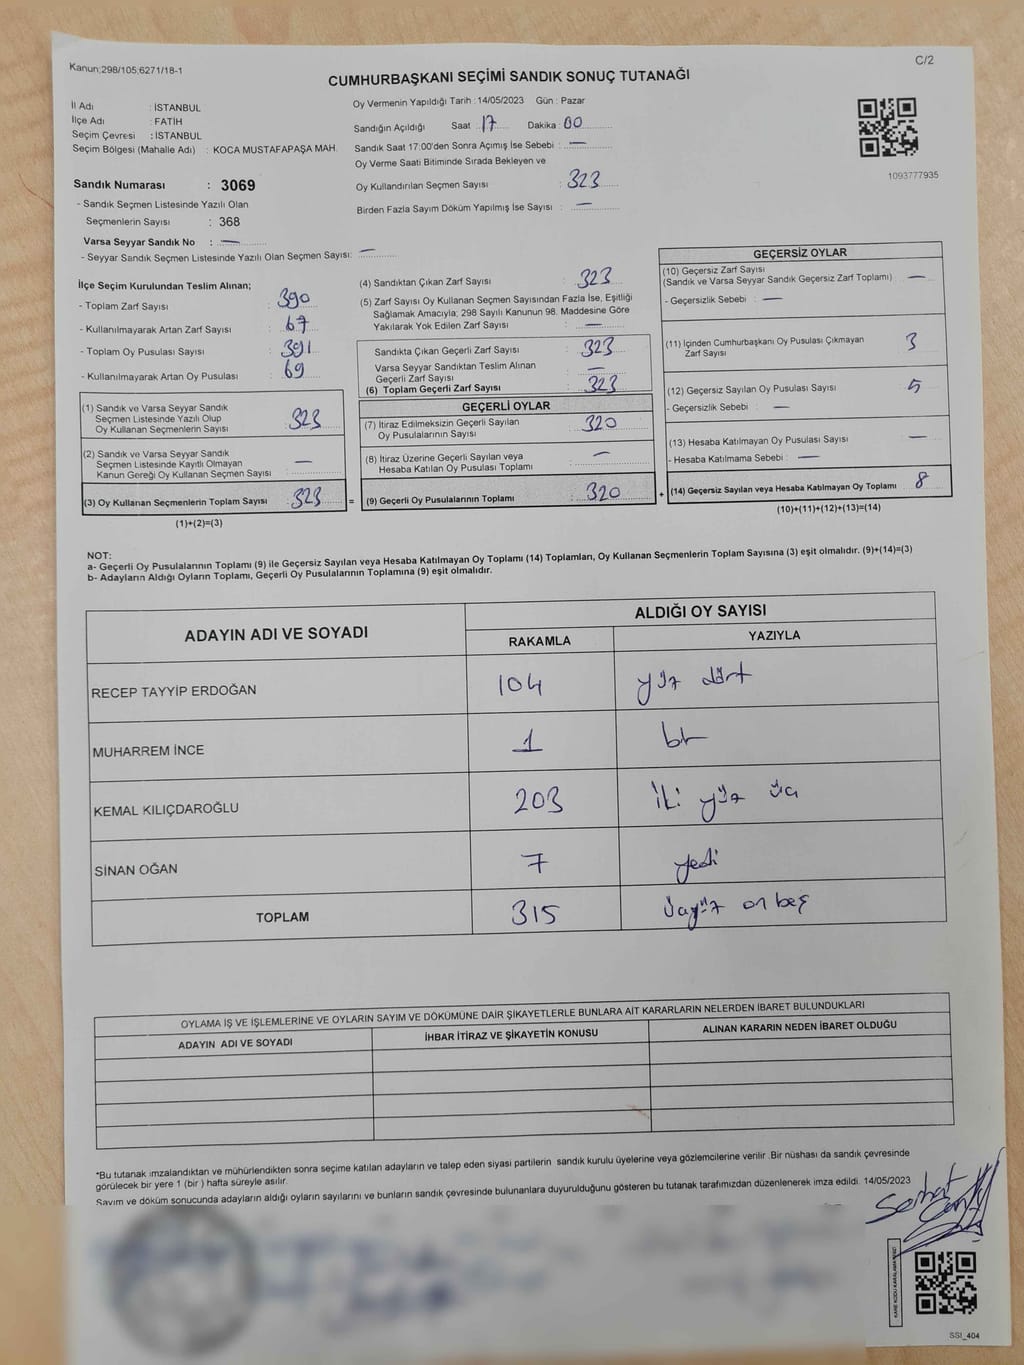 Kanun;298/105;6271/18-1
C/2
CUMHURBAŞKANI SEÇİMİ SANDIK SONUÇ TUTANAĞI
İl Adı : İSTANBUL
İlçe Adı : FATİH
Seçim Çevresi : İSTANBUL
Seçim Bölgesi (Mahalle Adı) : KOCA MUSTAFAPAŞA MAH.
Sandık Numarası : 3069
- Sandık Seçmen Listesinde Yazılı Olan
Seçmenlerin Sayısı : 368
Varsa Seyyar Sandık No : —
- Seyyar Sandık Seçmen Listesinde Yazılı Olan Seçmen Sayısı: —
Oy Vermenin Yapıldığı Tarih : 14/05/2023 Gün : Pazar
Sandığın Açıldığı Saat : 17 Dakika : 00
Sandık Saat 17:00'den Sonra Açımış İse Sebebi : —
Oy Verme Saati Bitiminde Sırada Bekleyen ve
Oy Kullandırılan Seçmen Sayısı : 323
Birden Fazla Sayım Döküm Yapılmış İse Sayısı : —
1093777935
İlçe Seçim Kurulundan Teslim Alınan;
- Toplam Zarf Sayısı : 390
- Kullanılmayarak Artan Zarf Sayısı : 67
- Toplam Oy Pusulası Sayısı : 391
- Kullanılmayarak Artan Oy Pusulası : 69
(1) Sandık ve Varsa Seyyar Sandık
Seçmen Listesinde Yazılı Olup
Oy Kullanan Seçmenlerin Sayısı : 323
(2) Sandık ve Varsa Seyyar Sandık
Seçmen Listesinde Kayıtlı Olmayan
Kanun Gereği Oy Kullanan Seçmen Sayısı : —
(3) Oy Kullanan Seçmenlerin Toplam Sayısı : 323
(1)+(2)=(3)
=
(4) Sandıktan Çıkan Zarf Sayısı : 323
(5) Zarf Sayısı Oy Kullanan Seçmen Sayısından Fazla İse, Eşitliği
Sağlamak Amacıyla; 298 Sayılı Kanunun 98. Maddesine Göre
Yakılarak Yok Edilen Zarf Sayısı : —
Sandıkta Çıkan Geçerli Zarf Sayısı : 323
Varsa Seyyar Sandıktan Teslim Alınan
Geçerli Zarf Sayısı : —
(6) Toplam Geçerli Zarf Sayısı : 323
GEÇERLİ OYLAR
(7) İtiraz Edilmeksizin Geçerli Sayılan
Oy Pusulalarının Sayısı : 320
(8) İtiraz Üzerine Geçerli Sayılan veya
Hesaba Katılan Oy Pusulası Toplamı : —
(9) Geçerli Oy Pusulalarının Toplamı : 320
+
GEÇERSİZ OYLAR
(10) Geçersiz Zarf Sayısı
(Sandık ve Varsa Seyyar Sandık Geçersiz Zarf Toplamı) : —
- Geçersizlik Sebebi : —
(11) İçinden Cumhurbaşkanı Oy Pusulası Çıkmayan
Zarf Sayısı : 3
(12) Geçersiz Sayılan Oy Pusulası Sayısı : 5
- Geçersizlik Sebebi : —
(13) Hesaba Katılmayan Oy Pusulası Sayısı : —
- Hesaba Katılmama Sebebi : —
(14) Geçersiz Sayılan veya Hesaba Katılmayan Oy Toplamı : 8
(10)+(11)+(12)+(13)=(14)
NOT:
a- Geçerli Oy Pusulalarının Toplamı (9) ile Geçersiz Sayılan veya Hesaba Katılmayan Oy Toplamı (14) Toplamları, Oy Kullanan Seçmenlerin Toplam Sayısına (3) eşit olmalıdır. (9)+(14)=(3)
b- Adayların Aldığı Oyların Toplamı, Geçerli Oy Pusulalarının Toplamına (9) eşit olmalıdır.
ADAYIN ADI VE SOYADI
ALDIĞI OY SAYISI
RAKAMLA YAZIYLA
RECEP TAYYİP ERDOĞAN 104 yüz dört
MUHARREM İNCE 1 bir
KEMAL KILIÇDAROĞLU 203 iki yüz üç
SİNAN OĞAN 7 yedi
TOPLAM 315 üçyüz on beş
OYLAMA İŞ VE İŞLEMLERİNE VE OYLARIN SAYIM VE DÖKÜMÜNE DAİR ŞİKAYETLERLE BUNLARA AİT KARARLARIN NELERDEN İBARET BULUNDUKLARI
ADAYIN ADI VE SOYADI İHBAR İTİRAZ VE ŞİKAYETİN KONUSU ALINAN KARARIN NEDEN İBARET OLDUĞU
*Bu tutanak imzalandıktan ve mühürlendikten sonra seçime katılan adayların ve talep eden siyasi partilerin sandık kurulu üyelerine veya gözlemcilerine verilir. Bir nüshası da sandık çevresinde
görülecek bir yere 1 (bir ) hafta süreyle asılır.
Sayım ve döküm sonucunda adayların aldığı oyların sayılarını ve bunların sandık çevresinde bulunanlara duyurulduğunu gösteren bu tutanak tarafımızdan düzenlenerek imza edildi. 14/05/2023
Serhat
KARE KODU KARALAMAYINIZ
SSI_404